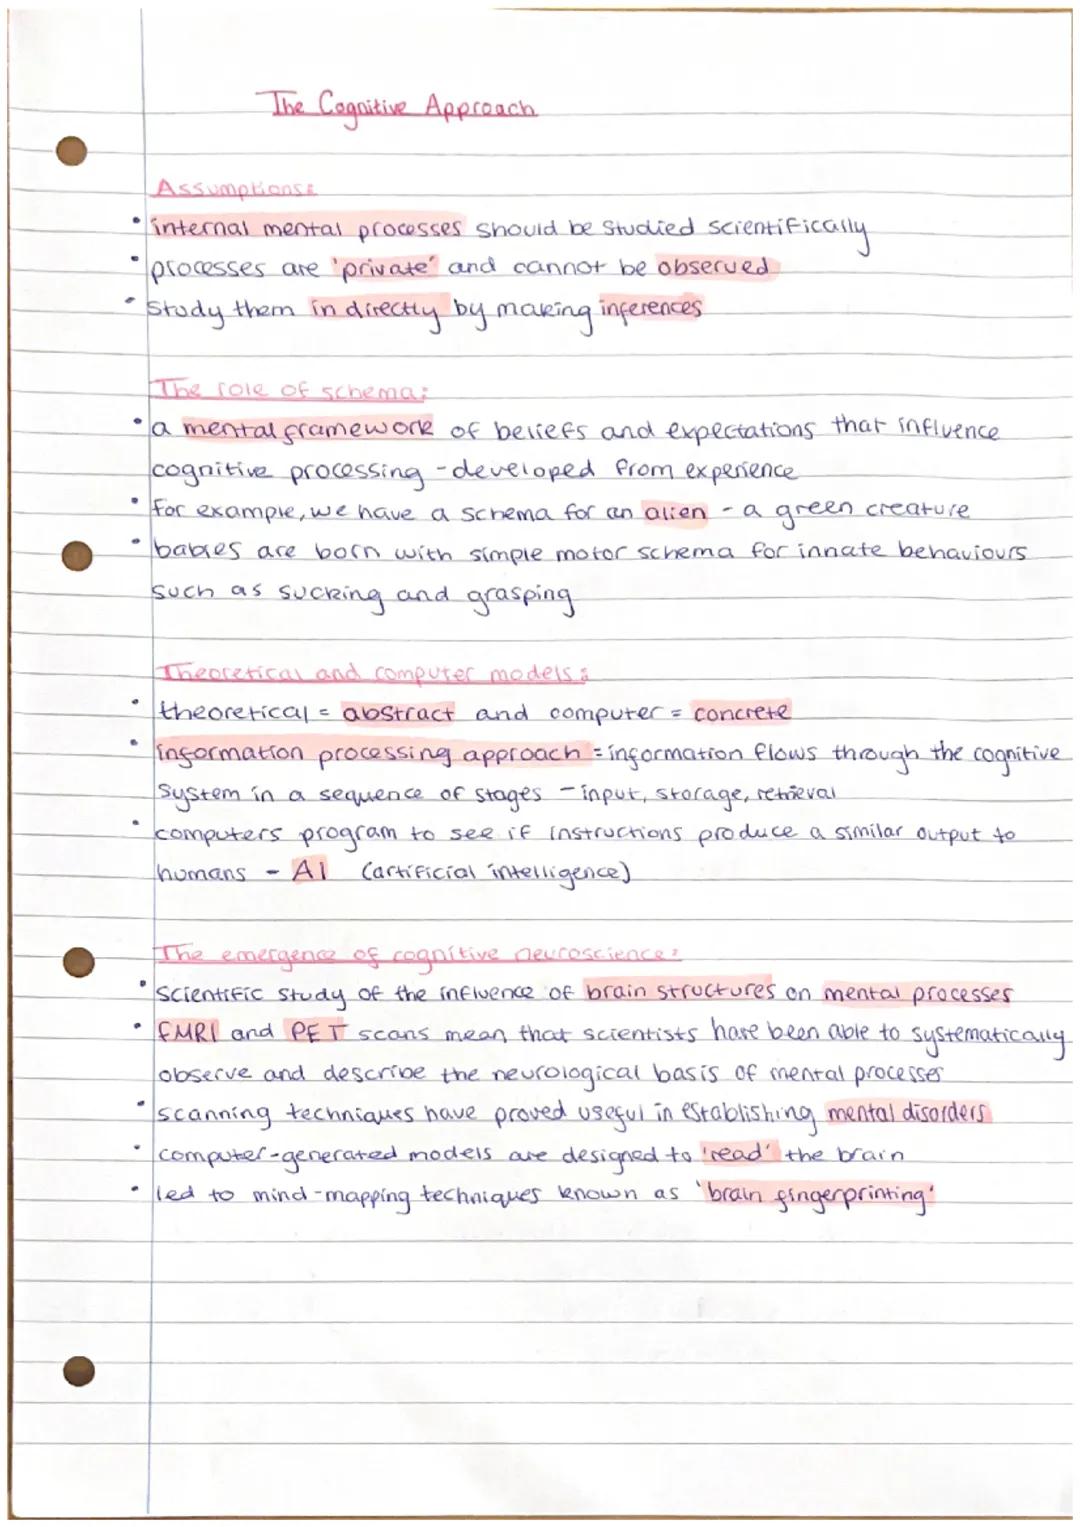 The Cognitive Approach
Assumptions:
• internal mental processes should be studied scientifically
• processes are 'private' and cannot be observed
• study them indirectly by making inferences
The role of schema:
• a mental framework of beliefs and expectations that influence
cognitive processing - developed from experience
• for example, we have a schema for an alien - a green creature
• babies are born with simple motor schema for innate behaviours
such as sucking and grasping
Theoretical and computer models:
• theoretical = abstract and computer = concrete
• information processing approach = information flows through the cognitive
system in a sequence of stages - input, storage, retrieval
• computers program to see if instructions produce a similar output to
humans - AI (artificial intelligence)
The emergence of cognitive neuroscience:
• scientific study of the influence of brain structures on mental processes
• FMRI and PET scans mean that scientists have been able to systematically
observe and describe the neurological basis of mental processes
• scanning techniques have proved useful in establishing mental disorders
• computer-generated models are designed to 'read' the brain
• led to mind-mapping techniques known as 'brain fingerprinting'